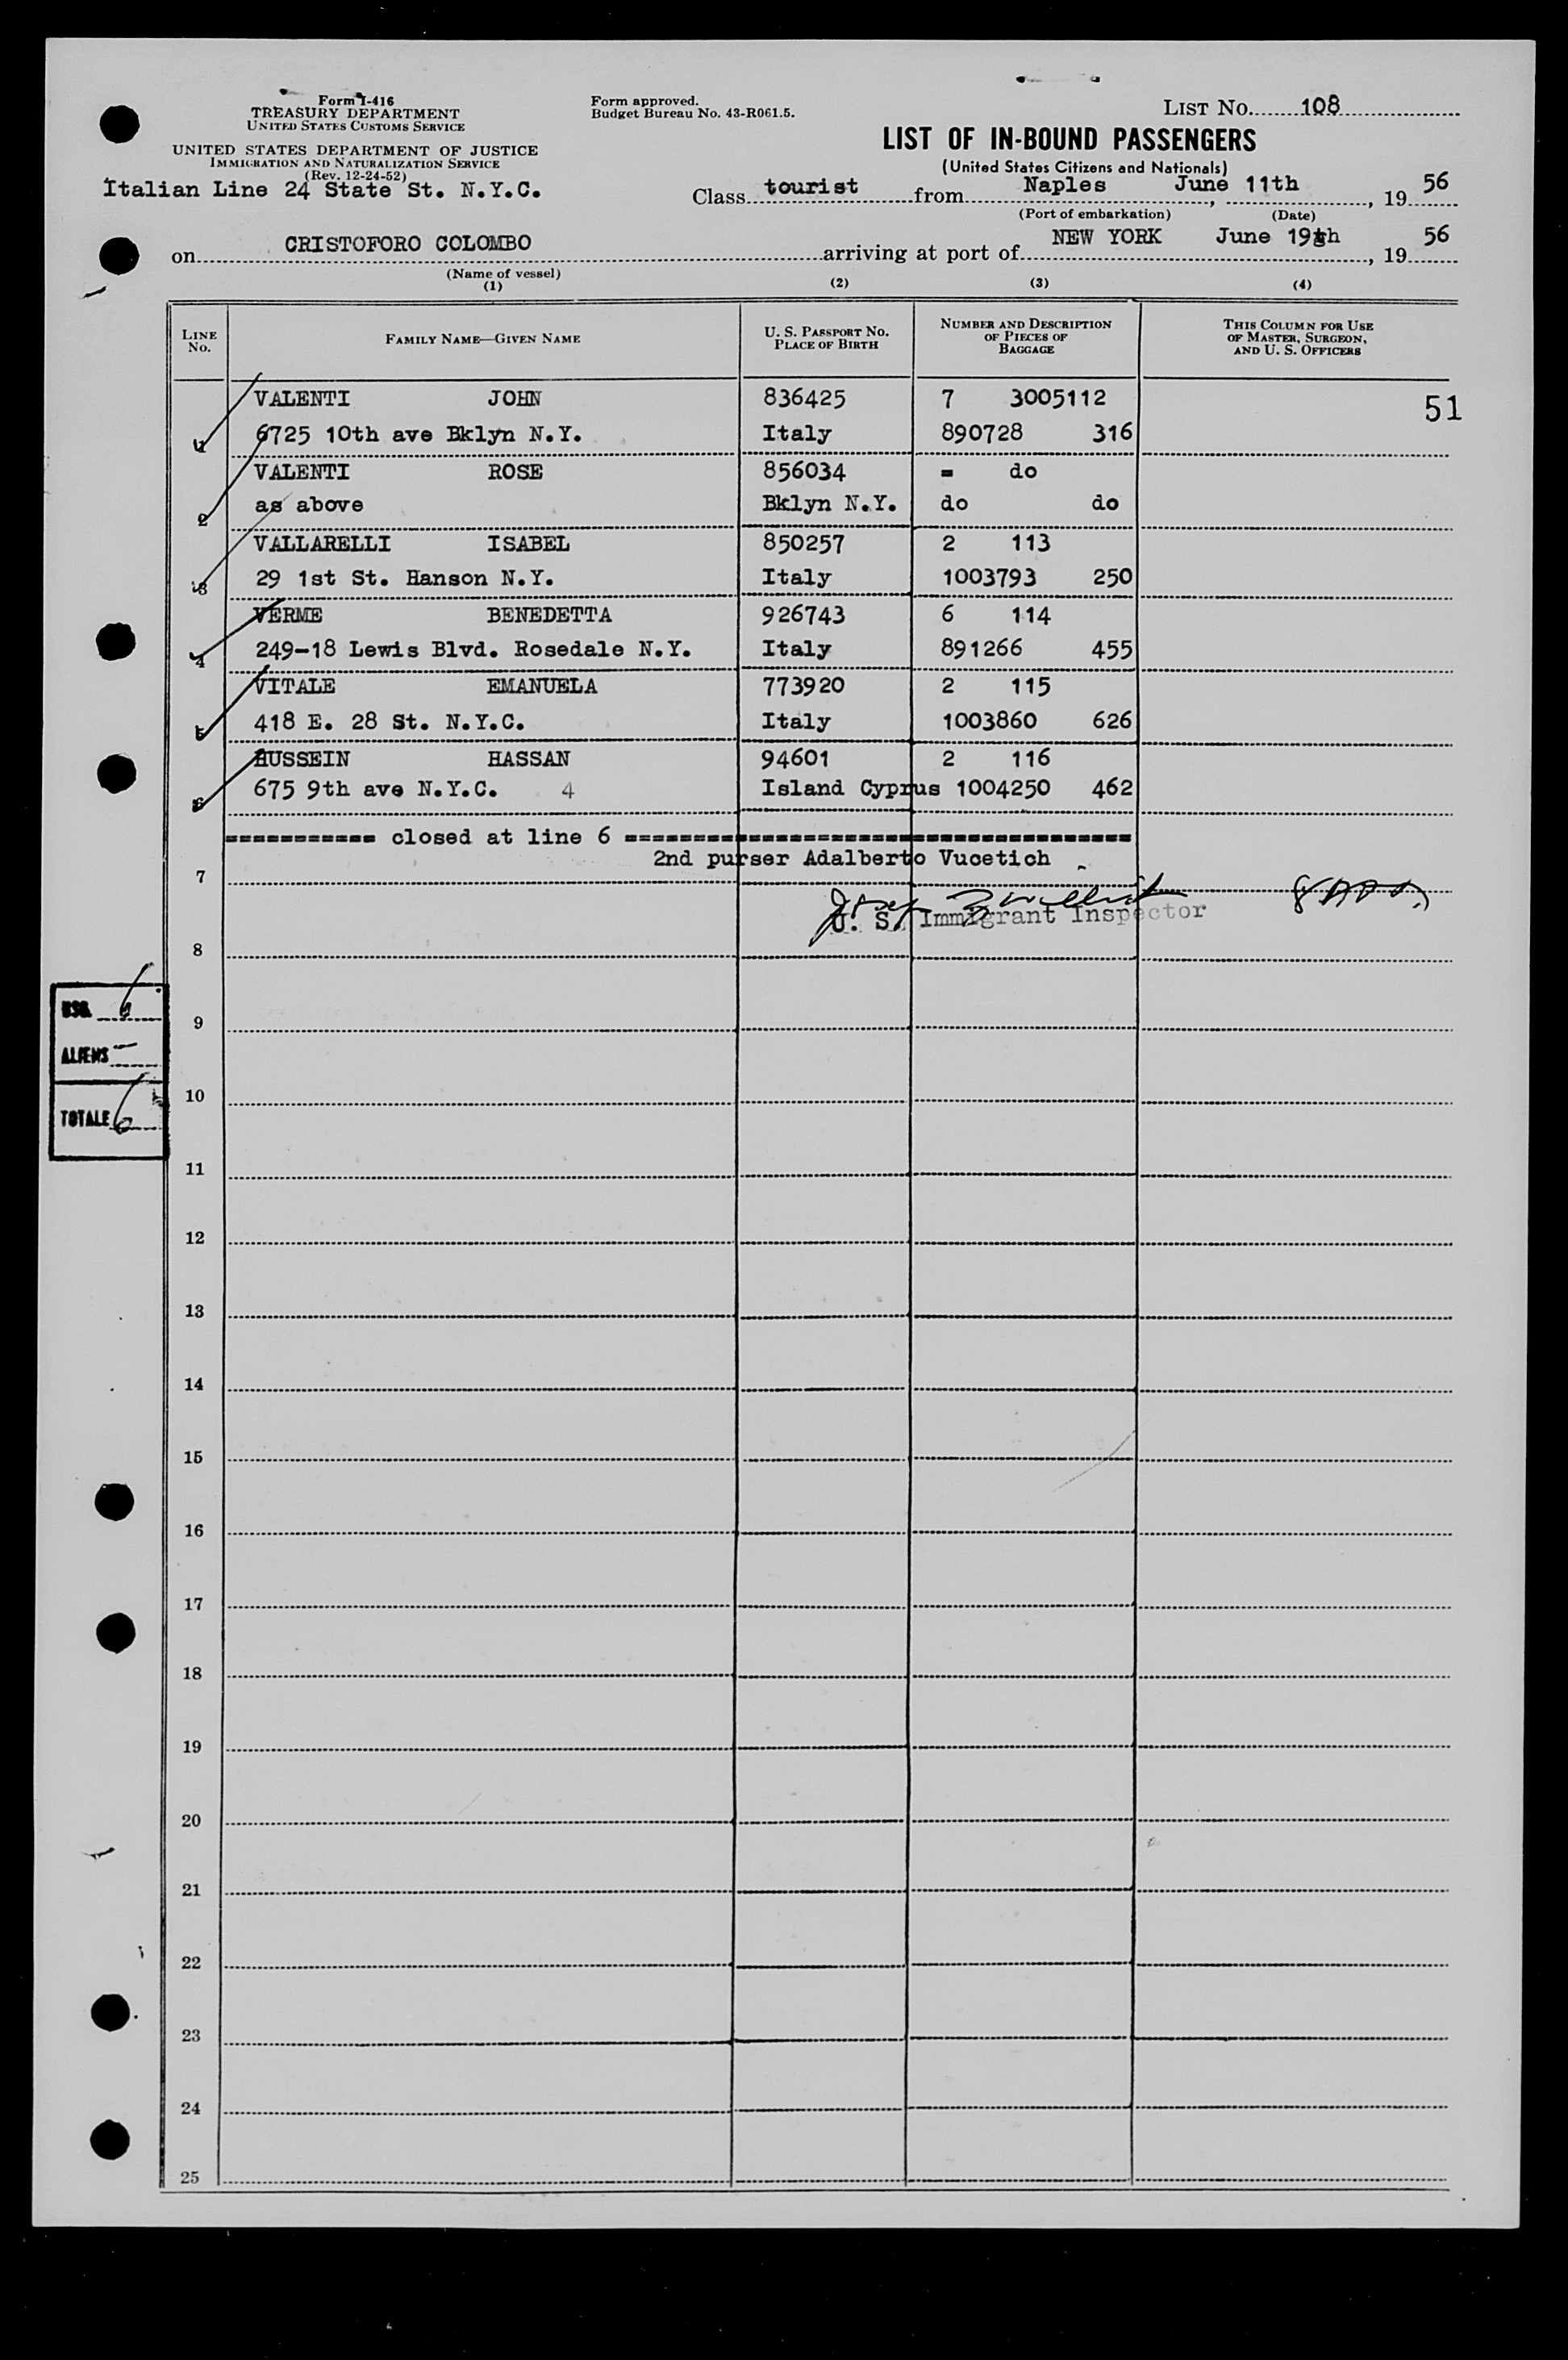 Form I-416
TREASURY DEPARTMENT
UNITED STATES CUSTOMS SERVICE
UNITED STATES DEPARTMENT OF JUSTICE
IMMIGRATION AND NATURALIZATION SERVICE
(Rev. 12-24-52)
Form approved.
Budget Bureau No. 43-R061.5.
LIST NO. 108
LIST OF IN-BOUND PASSENGERS
(United States Citizens and Nationals)
Italian Line 24 State St. N.Y.C.
Class tourist from Naples, June 11th, 19 56
(Port of embarkation) (Date)
on CRISTOFORO COLOMBO arriving at port of NEW YORK June 19th, 19 56
(Name of vessel)
(1) (2) (3) (4)
LINE NO.
FAMILY NAME—GIVEN NAME
U. S. PASSPORT NO.
PLACE OF BIRTH
NUMBER AND DESCRIPTION
OF PIECES OF
BAGGAGE
THIS COLUMN FOR USE
OF MASTER, SURGEON,
AND U. S. OFFICERS
VALENTI JOHN 836425 7 3005112 51
1 6725 10th ave Bklyn N.Y. Italy 890728 316
VALENTI ROSE 856034 = do
2 as above Bklyn N.Y. do do
VALLARELLI ISABEL 850257 2 113
3 29 1st St. Hanson N.Y. Italy 1003793 250
VERME BENEDETTA 926743 6 114
4 249-18 Lewis Blvd. Rosedale N.Y. Italy 891266 455
VITALE EMANUELA 773920 2 115
5 418 E. 28 St. N.Y.C. Italy 1003860 626
HUSSEIN HASSAN 94601 2 116
6 675 9th ave N.Y.C. 4 Island Cyprus 1004250 462
=========== closed at line 6 =====================================
2nd purser Adalberto Vucetich
7
U. S. Immigrant Inspector
8
USC. 6
9
ALIENS –
10
TOTALE 6
11
12
13
14
15
16
17
18
19
20
21
22
23
24
25